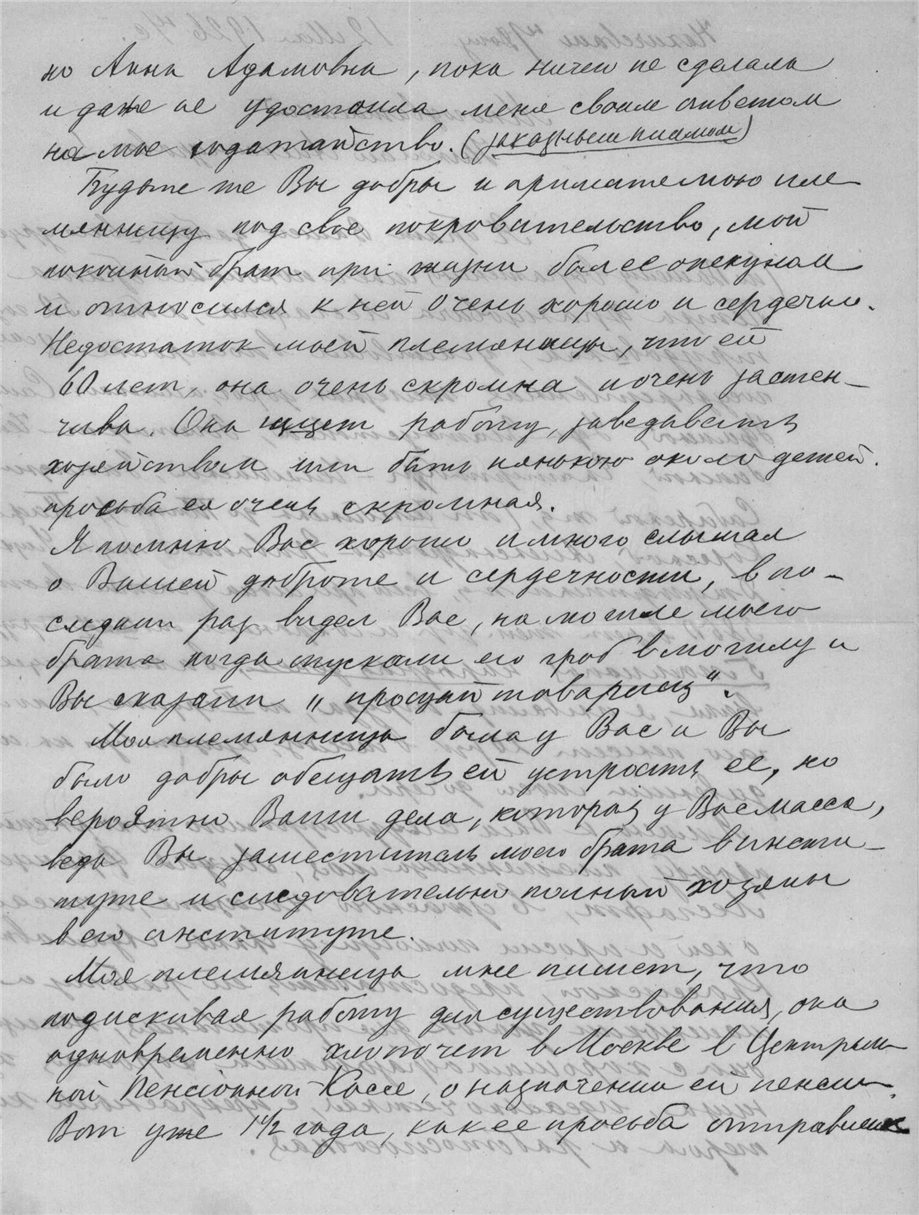 но Анна Адамовна, пока ничем не сделала
и даже не удостоила меня своим ответом
на мое ходатайство. (заказным письмом)
Будьте же Вы добры и примите мою пле
мянницу под свое покровительство, мой
покойный брат при жизни был ее опекуном
и относился к ней очень хорошо и сердечно.
Недостаток моей племянницы, что ей
60 лет, она очень скромна и очень застен-
чива. Она ищет работу, заведывать
хозяйством или быть нянькою около детей.
просьба ея очень скромная.
Я помню Вас хорошо и много слышал
о Вашей доброте и сердечности, в по-
следний раз видел Вас, на могиле моего
брата когда опускали его гроб в могилу и
Вы сказали „прощай товарищ“.
Моя племянница была у Вас и Вы
были добры обещать ей устроить ее, но
вероятно Ваши дела, которых у Вас масса,
ведь Вы заместитель моего брата в инсти-
туте и следовательно полный хозяин
в его институте.
Моя племянница мне пишет, что
подискивая работу для существования, она
одновременно хлопочет в Москве в Централь
ной Пенсiонной Кассе, о назначении ей пенсии
Вот уже 1½ года, как ее просьба отправлена